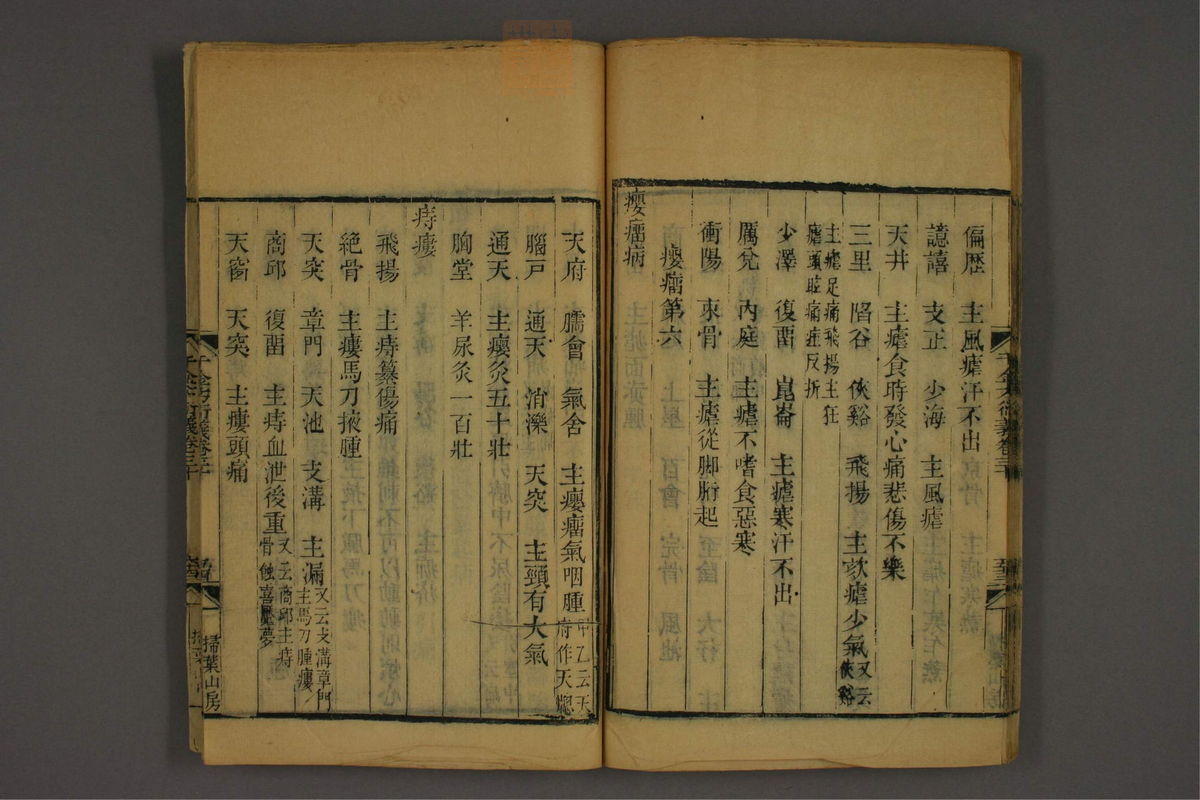 偏歷　主風瘧汗不出
譩譆　支正　少海　主風瘧
天井　主瘧食時發心痛悲傷不樂
三里　陷谷　俠谿　飛揚　主痎瘧少氣又云俠谿
主瘧足痛飛揚主狂
瘧頭眩痛痓反折
少澤　復畱　崑崙　主瘧寒汗不出
厲兌　內庭　主瘧不嗜食惡寒
衝陽　束骨　主瘧從脚胻起
癭瘤第六
癭瘤病
天府　臑會　氣舍　主癭瘤氣咽腫甲乙云天府作天牕
腦戸　通天　消濼　天突　主頸有大氣
通天　主癭灸五十壯
胸堂　羊屎灸一百壯
痔瘻
飛揚　主痔篡傷痛
絶骨　主瘻馬刀掖腫
天突　章門　天池　支溝　主漏又云支溝章門主馬刀腫瘻
商邱　復畱　主痔血泄後重又云商邱主痔骨蝕喜魘夢
天窗　天突　主瘻頭痛
千金方衍義卷三十
掃葉山房